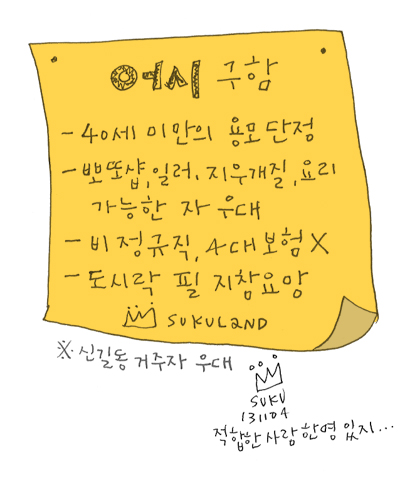 어시 구함
- 40세 미만의 용모단정
- 뽀또샵, 일러, 지우개질, 요리
가능한 자 우대
- 비정규직, 4대보험 X
- 도시락 필 지참요망
SUKULAND
※ 신길동 거주자 우대
SUKU
131104
적합한 사람 한명 있지...